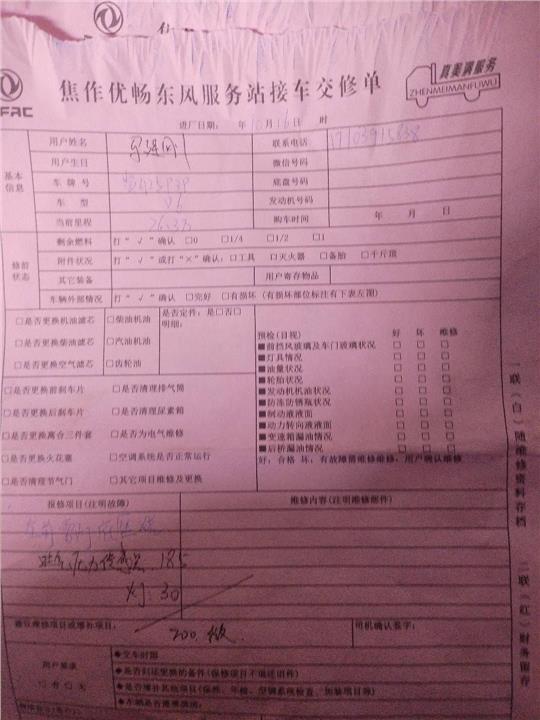 焦作优畅东风服务站接车交修单
真美满服务
ZHENMEIMANFUWU
进厂日期: 年10月16日 时
基本信息
用户姓名
联系电话
用户生日
微信号码
车牌号
底盘号码
车型
发动机号码
当前里程
购车时间 年 月 日
修前状态
剩余燃料 打"√"确认 □0 □1/4 □1/2 □1
附件状况 打"√"或打"×"确认:□工具 □灭火器 □备胎 □千斤顶
其它装备
用户寄存物品
车辆外部情况 打"√"确认 □完好 □有损坏(有损坏部位标注有下表左图)
□是否更换机油滤芯 □柴油机油
是否定件:是□否□
明细:
□是否更换柴油滤芯 □汽油机油
□是否更换空气滤芯 □齿轮油
□是否更换前刹车片 □是否清理排气筒
□是否更换后刹车片 □是否清理尿素箱
□是否更换离合三件套 □是否为电气维修
□是否更换火花塞 □空调系统是否正常运行
□是否清理节气门 □其它项目维修及更换
预检(目视) 好 坏 维修
■前挡风玻璃及车门玻璃状况 □ □ □
■灯具情况 □ □ □
■油量状况 □ □ □
■轮胎状况 □ □ □
■发动机机油状况 □ □ □
■防冻防锈瓶状况 □ □ □
■制动液液面 □ □ □
■动力转向液液面 □ □ □
■变速箱漏油情况 □ □ □
■后桥漏油情况 □ □ □
好,合格 坏,有故障需维修维修,用户确认维修
报修项目(注明故障)
维修内容(注明维修部件)
185
30
建议维修项目或增补项目:
200.
司机确认签字:
用户要求
□有 □无
◆交车时期
◆是否归还更换的备件(保修项目不退还旧件)
一联(白)随维修资料存档
二联(红)财务留存